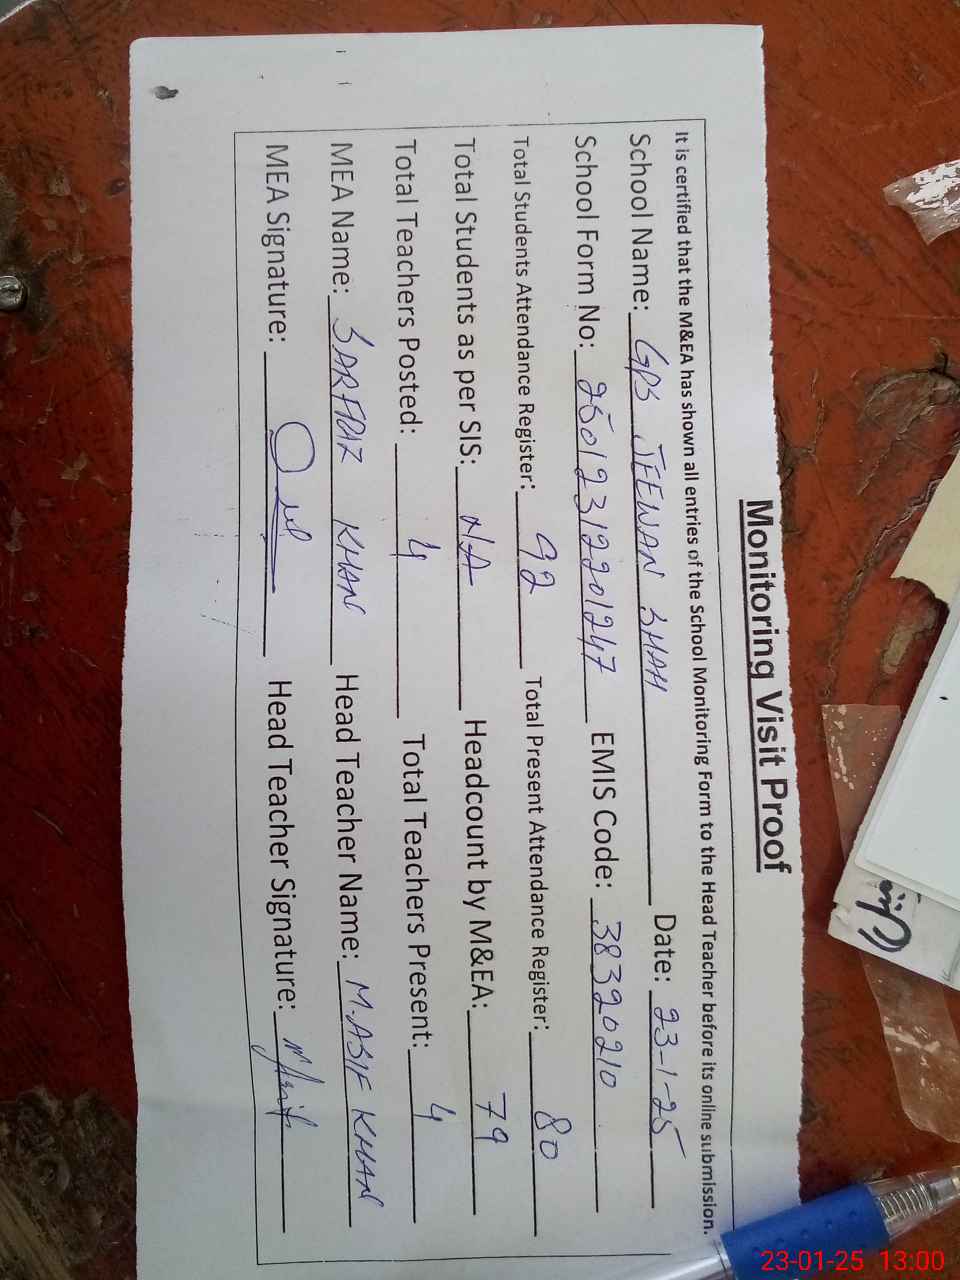 Monitoring Visit Proof
It is certified that the M&EA has shown all entries of the School Monitoring Form to the Head Teacher before its online submission.
School Name: GPS JEEWAN SHAH Date: 23-1-25
School Form No: 25012312201247 EMIS Code: 38320210
Total Students Attendance Register: 92 Total Present Attendance Register: 80
Total Students as per SIS: NA Headcount by M&EA: 79
Total Teachers Posted: 4 Total Teachers Present: 4
MEA Name: SARFRAZ KHAN Head Teacher Name: M. ASIF KHAN
MEA Signature: Head Teacher Signature: MAsif
23-01-25 13:00